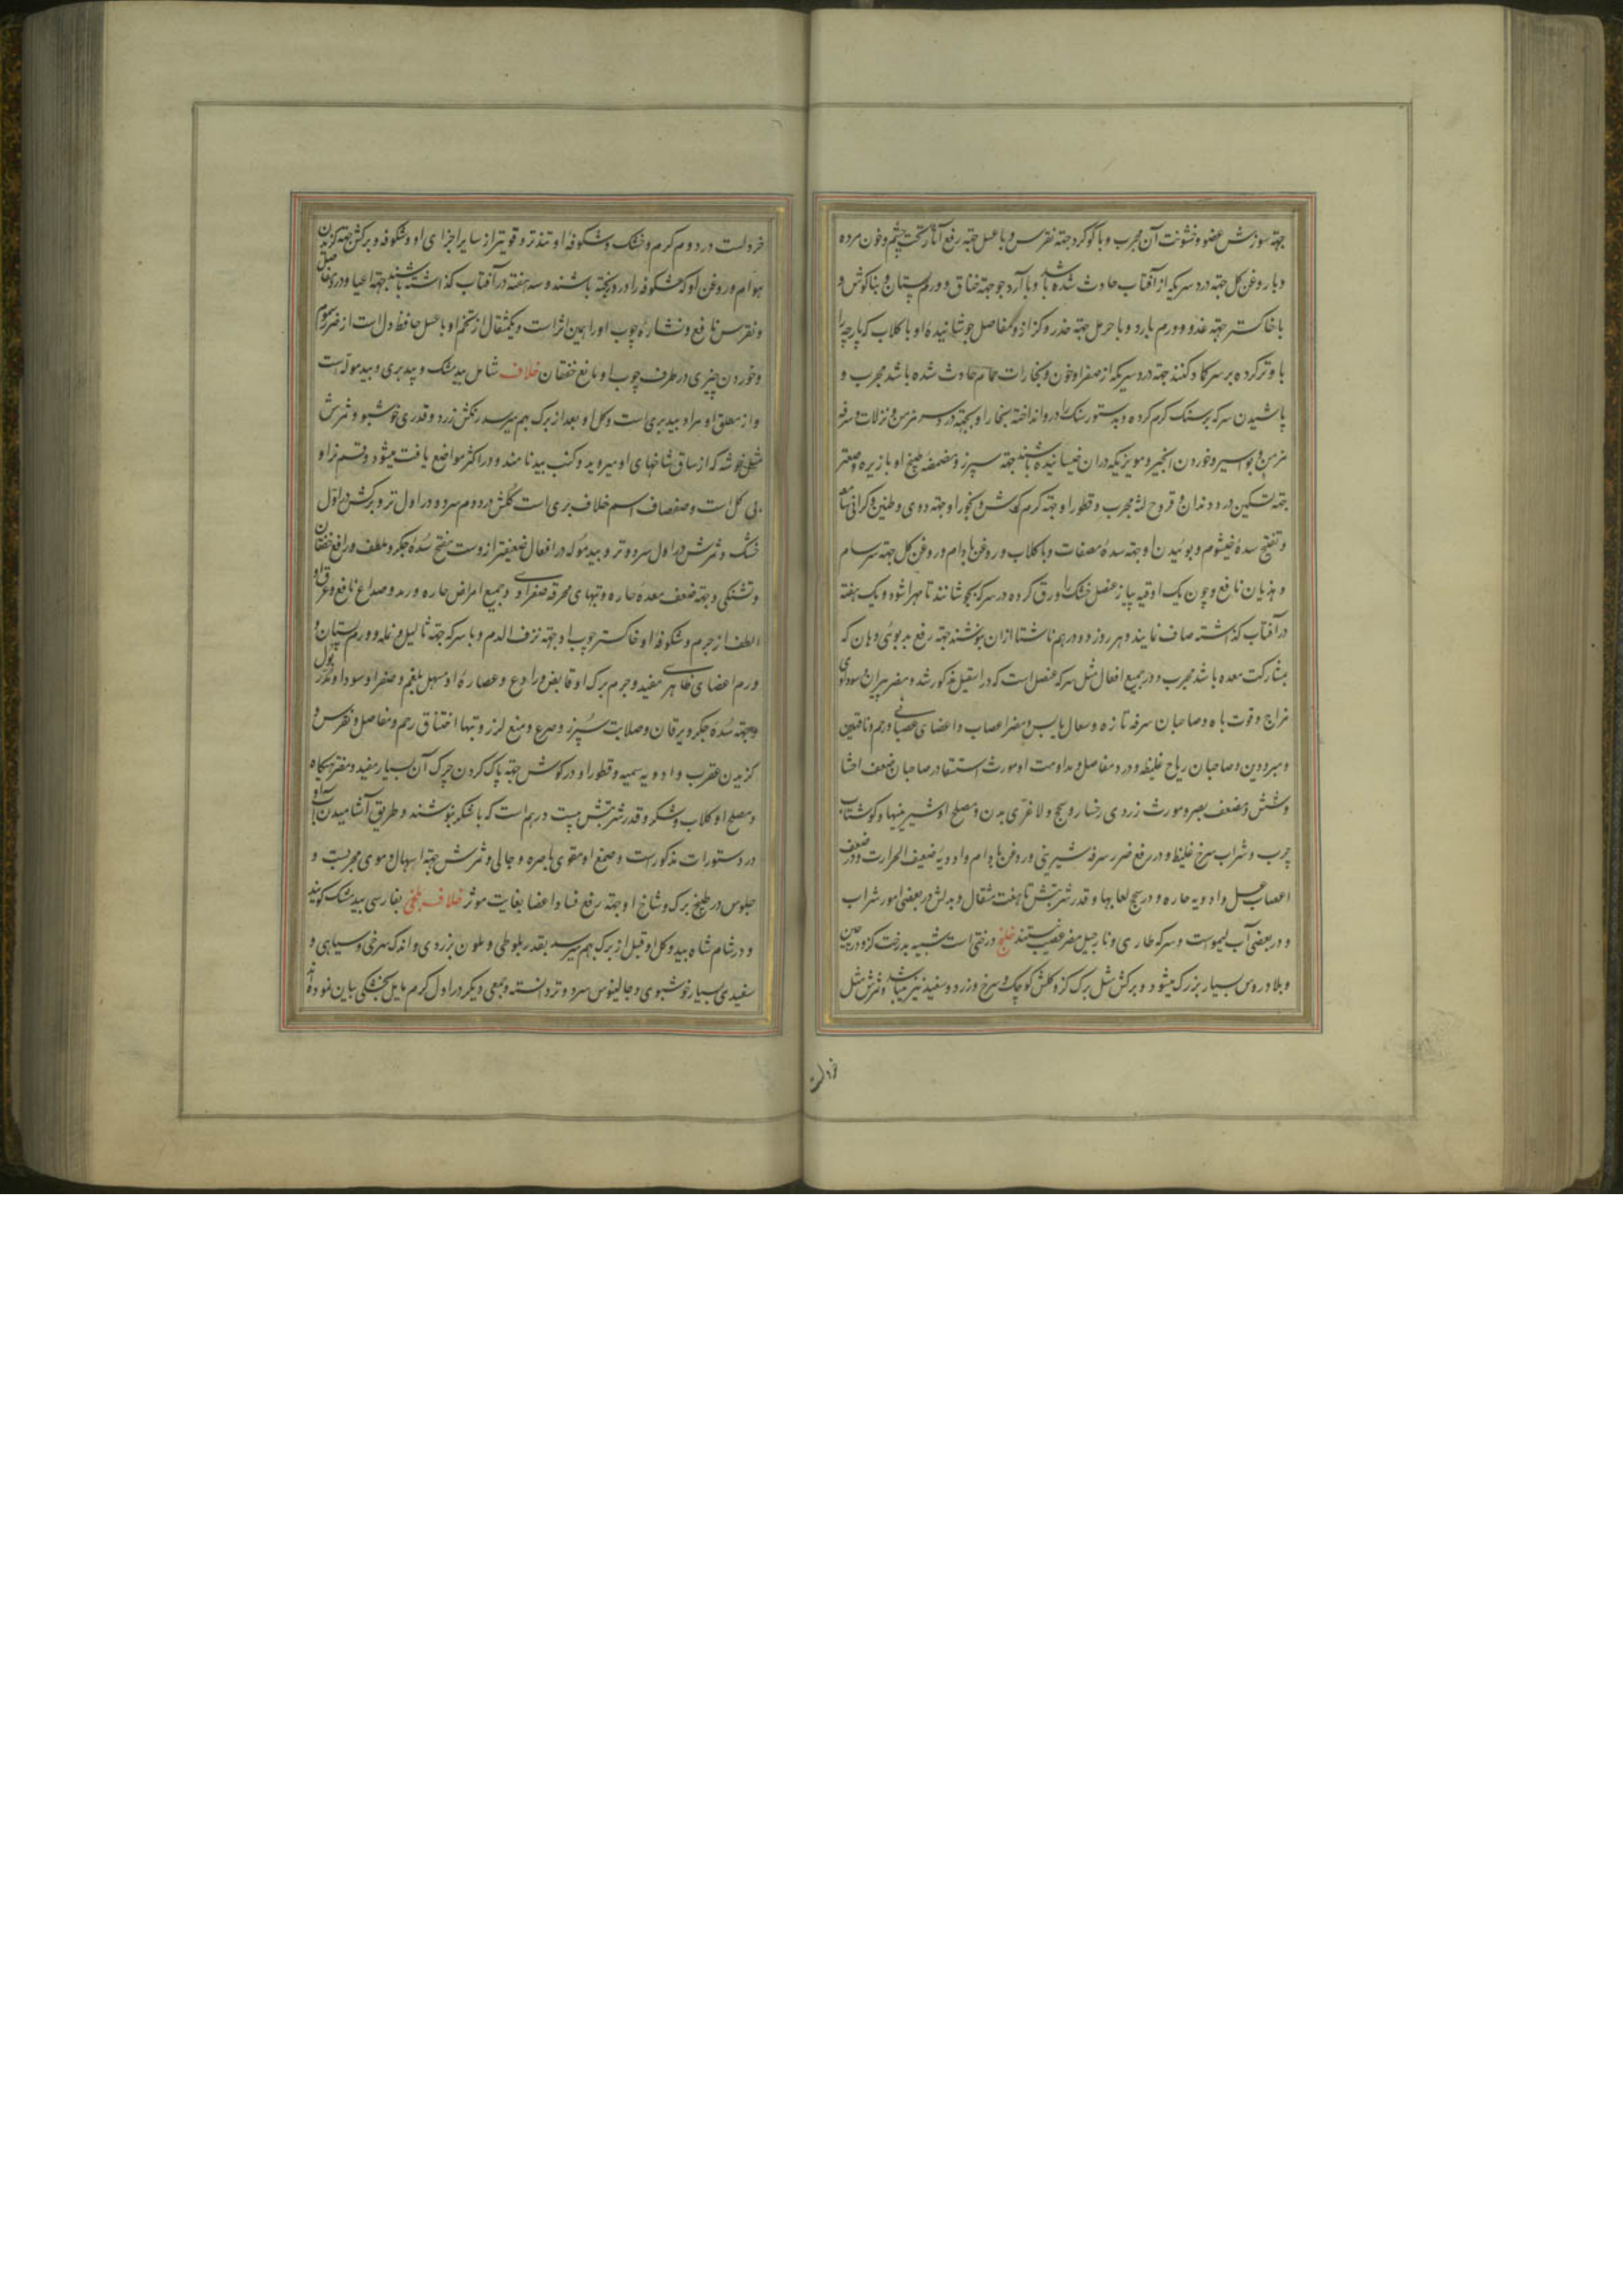 جهة سوزش عضو و خشونت آن مجرب و با گوگرد جهة نقرس و با عسل جهة رفع آثار تحت چشم و خون مرده
و با روغن گل جهة درد سریکه از آفتاب حادث شده باشد و با آرد جو جهة خناق و ورم پستان و بناکوش و
با خاکستر جهة غدد و ورم بارد و با حرمل جهة خدر و کزاز و مفاصل جوشانیده او با کلاب که پارچه را
با و ترکرده بر سر کماد کنند جهة درد سریکه از صفرا و خون و بخارات حمام حادث شده باشد مجرب و
پاشیدن سرکه بر سنک کرم کرده و بدستور سنک را در و انداخته بخار او بجهة درد سر مزمن و نزلات و سرفه
مزمن و بواسیر و خوردن انجیر و مویزیکه در ان خیسانیده باشند جهة سپرز و مضمضه طبیخ او با زیره و صعتر
جهة تسکین درد دندان و قروح لثه مجرب و قطور او جهة کرم کوش و بخور او جهة دوی و طنین و کرانی سامعه
و تفتیح سدۀ خیشوم و بوئیدن او جهة سدۀ مصفات و با کلاب و روغن بادام و روغن کل جهة سرسام
و هذیان نافع و چون یک اوقیه پیاز عنصل خشک را ورق کرده در سرکه بجوشانند تا مهرا شود و یک هفته
در آفتاب کذاشته صاف نمایند و هر روز دو درهم ناشتا ازان بنوشند جهة رفع بدبوئی دهان که
بمشارکت معده باشد مجرب و در جمیع افعال مثل سرکه عنصل است که در اسقیل مذکور شد و مضر پیران و سوداوی
مزاج و قوت باه و صاحبان سرفه تازه و سعال یابس و مضر اعصاب و اعضای عصبانی و رحم و ناقهین
و مبرودین و صاحبان ریاح غلیظ و درد مفاصل و مداومت او مورث استسقا در صاحبان ضعف احشا
و شش و مضعف بصر و مورث زردی رخسار و سحج و لاغری بدن و مصلح او شیرینیها و کوشتاب
چرب و شراب سرخ غلیظ و در رفع ضرر سرفه شیرینی و روغن بادام و ادویۀ ضعیف الحرارت و در ضعف
اعصاب عسل و ادویه حاره و در سحج لعابها و قدر شربتش تا هفت مثقال و بدلش در بعضی امور شراب
و در بعضی آب لیموست و سرکه طاری و نارجیل مضر عصب نیستند خلنج درختی است شبیه بدرخت کز و در چین
و بلاد روس بسیار بزرک میشود و برکش مثل برک کز و کلش کوچک و سرخ و زرد و سفید نیز میباشد و ثمرش مثل
خردل
خردلست در دوم کرم و خشک و شکوفه او تندتر و قویتر از سایر اجزای او و شکوفه و برکش جهة کزیدن
هوام و روغن او که شکوفه را در و ریخته باشند و سه هفته در آفتاب کذاشته باشند جهة اعیا و درد مفاصل
و نقرس نافع و نشاره چوب او را همین اثر است و یکمثقال از تخم او با عسل حافظ دل است از ضرر سموم
و خوردن چیزی در ظرف چوب او نافع خفقان خلاف شامل بیدمشک و بید بری و بید موله است
و از مطلق او مراد بید بری است و کل او بعد از برک بهم میرسد رنکش زرد و قدری خوشبو و ثمرش
مثل خوشه که از ساق شاخهای او میروید و کنب بید نامند و در اکثر مواضع یافت میشود و قسم نر او
بی کل است و صفصاف اسم خلاف بری است کلش در دوم سرد و در اول تر و برکش در اول
خشک و ثمرش در اول سرد و تر و بید موله در افعال ضعیفتر از وست مفتح سدۀ جکر و ملطف و رافع خفقان
و تشنکی و جهة ضعف معده حاره و تبهای محرقه صفراوی و جمیع امراض حاره و رمد و صداع نافع و عرق او
الطف از جرم و شکوفه او خاکستر چوب او جهة نزف الدم و با سرکه جهة ثالیل و نمله و ورم پستان و
ورم اعضای ظاهری مفید و جرم برک او قابض و رادع و عصاره او مسهل بلغم و صفرا و سودا و مدر بول
و جهة سدۀ جکر و یرقان و صلابت سپرز و صرع و منع لرز و تبها اختناق رحم و مفاصل و نقرس و
کزیدن عقرب و ادویه سمیه و قطور او در کوش جهة پاک کردن چرک آن بسیار مفید و مضر تهیکاه
و مصلح او کلاب و شکر و قدر شربتش بیست درهم است که با شکر بنوشند و طریق آشامیدن آب او
در دستورات مذکورست و صمغ او مقوی باصره و جالی و ثمرش جهة اسهال دموی مجربست و
جلوس در طبیخ برک و شاخ او جهة رفع فساد اعضا بغایت موثر خلاف بلخی بفارسی بیدمشک کویند
و در شام شاه بید و کل او قبل از برک بهم میرسد بقدر بلوطی و ملون بزردی و اندک سرخی و سیاهی و
سفیدی بسیار خوشبوی و جالینوس سرد و تر دانسته و جمعی دیکر در اول کرم مایل بخشکی بیان نموده اند